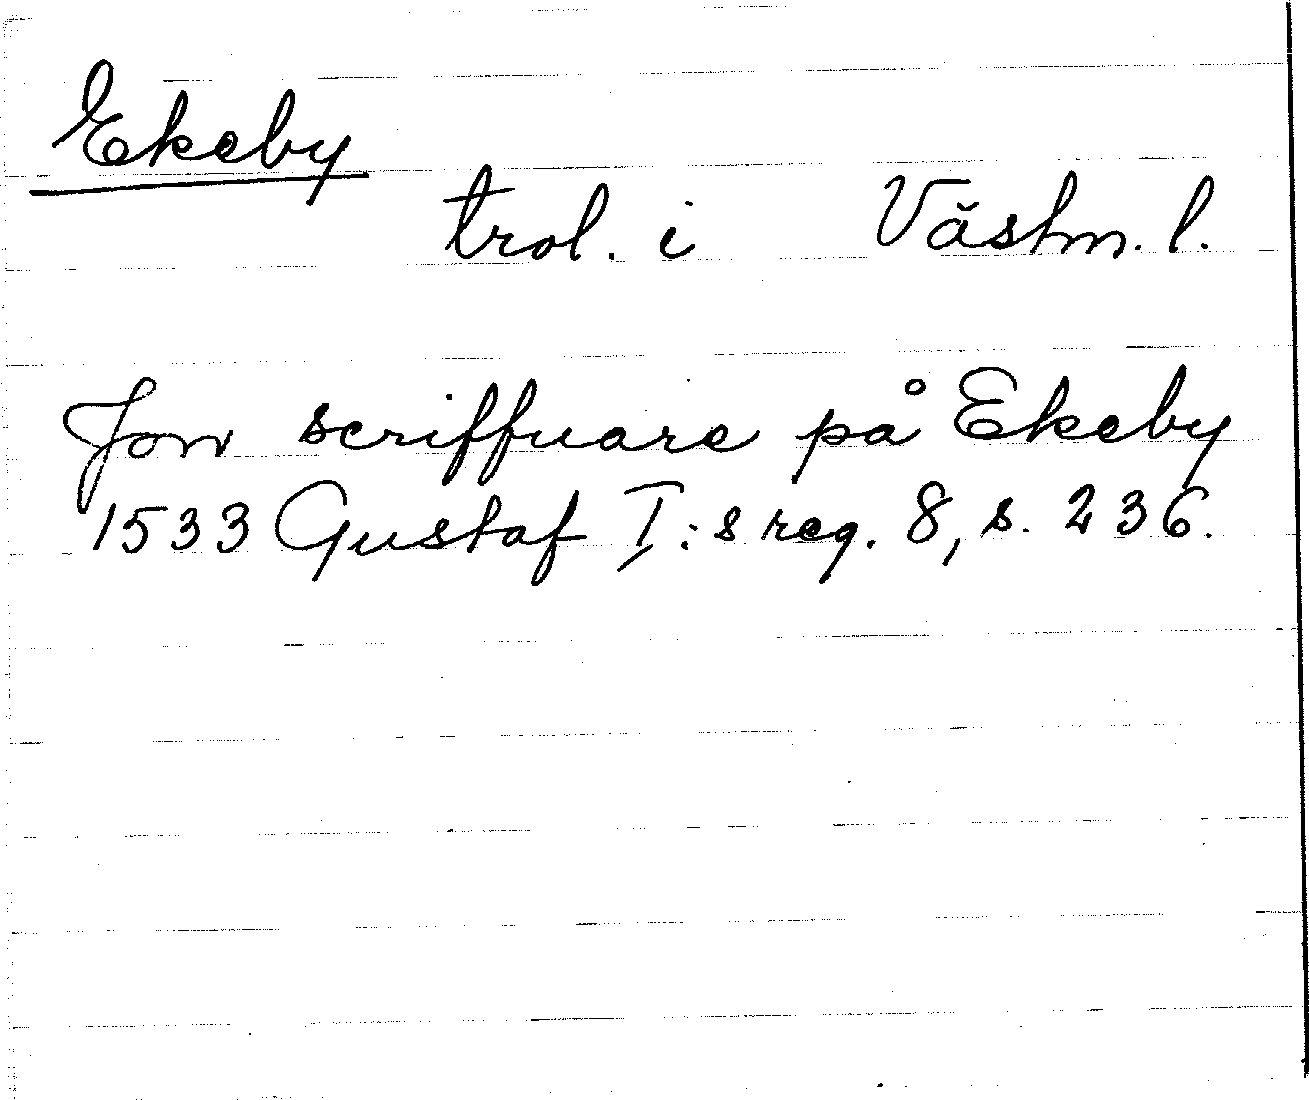 Ekeby
trol. i Västm. l.
Jon scriffuare på Ekeby
1533 Gustaf I:s reg. 8, s. 236.